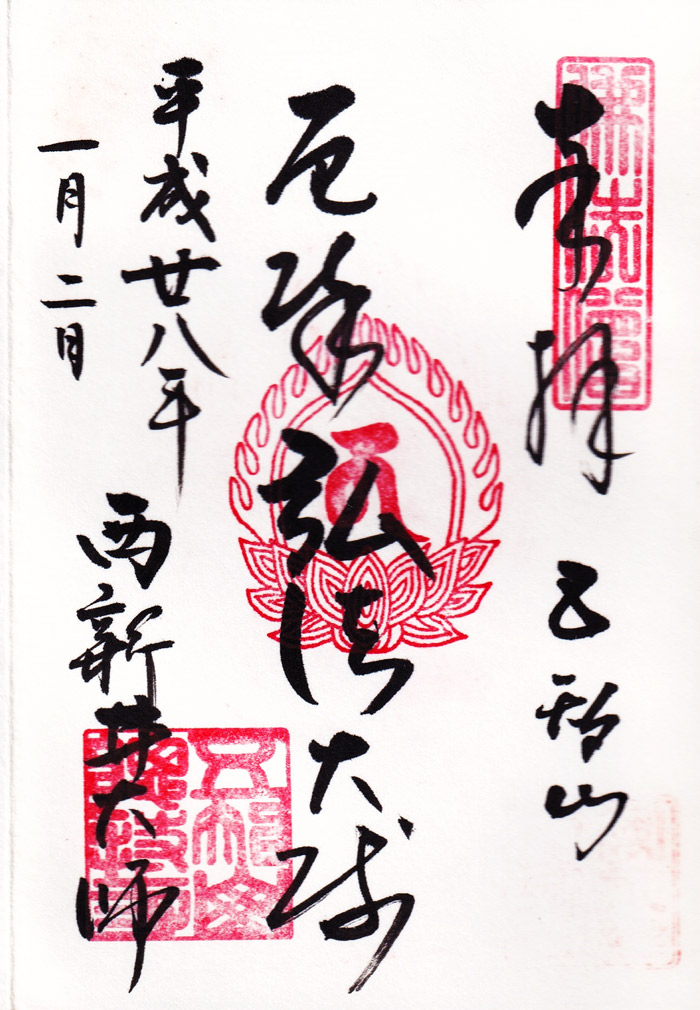 奉拝 五智山
厄除弘法大師
平成廿八年
一月二日
西新井大師
五智山
遍照院